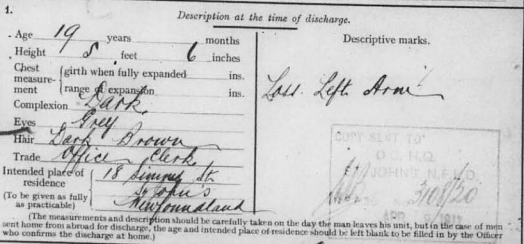 1.
Description at the time of discharge.
Age 19 years months
Height 5 feet 6 inches
Chest measurement { girth when fully expanded ins.
range of expansion ins.
Complexion Dark
Eyes Grey
Hair Dark Brown
Trade Office Clerk
Intended place of residence } 18 Simms St
(To be given as fully as practicable) St John's
Newfoundland
Descriptive marks.
Loss Left Arm
COPY SENT TO
O.C. H.Q.
ST JOHN'S N.F.L.D.
(The measurements and description should be carefully taken on the day the man leaves his unit, but in the case of men
sent home from abroad for discharge, the age and intended place of residence should be left blank to be filled in by the Officer
who confirms the discharge at home.)